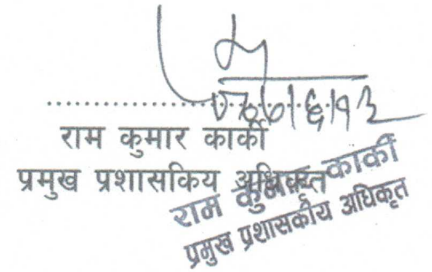 राम कुमार कार्की
प्रमुख प्रशासकिय अधिकृत
राम कुमार कार्की
प्रमुख प्रशासकीय अधिकृत